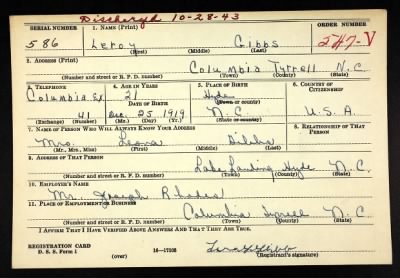 Dischargd 10-28-43
SERIAL NUMBER 1. NAME (Print) ORDER NUMBER
586 Leroy Gibbs 247-V
(First) (Middle) (Last)
2. ADDRESS (Print)
Columbia Tyrrell N.C.
(Number and street or R. F. D. number) (Town) (County) (State)
3. TELEPHONE 4. AGE IN YEARS 5. PLACE OF BIRTH 6. COUNTRY OF CITIZENSHIP
Columbia Ex 21 Hyde
DATE OF BIRTH (Town or county)
41 Dec. 25 1919 N.C. U.S.A.
(Exchange) (Number) (Mo.) (Day) (Yr.) (State or country)
7. NAME OF PERSON WHO WILL ALWAYS KNOW YOUR ADDRESS 8. RELATIONSHIP OF THAT PERSON
Mrs. Leona
(Mr., Mrs., Miss) (First) (Middle) (Last)
9. ADDRESS OF THAT PERSON
Lake Landing Hyde N.C.
(Number and street or R. F. D. number) (Town) (County) (State)
10. EMPLOYER'S NAME
Mr. Joseph Rhodes
11. PLACE OF EMPLOYMENT OR BUSINESS
Columbia Tyrrell N.C.
(Number and street or R. F. D. number) (Town) (County) (State)
I AFFIRM THAT I HAVE VERIFIED ABOVE ANSWERS AND THAT THEY ARE TRUE.
REGISTRATION CARD
D. S. S. Form 1 (over) 16—17105 (Registrant's signature)